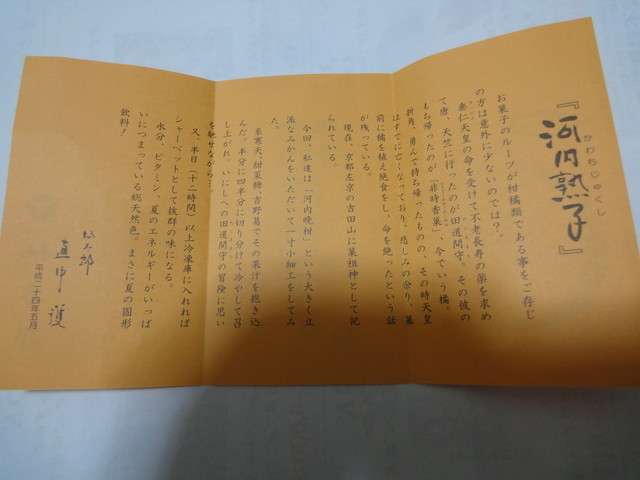 かわちじゅくし
『河内熟子』
お菓子のルーツが柑橘類である事をご存じ
の方は意外に少ないのでは?。
垂仁天皇の命を受けて不老長寿の薬を求め
て唐、天竺に行ったのが田道間守。その彼の
もち帰ったのが「非時香菓」、今でいう橘。
折角、勇んで持ち帰ったものの、その時天皇
はすでに亡くなっており、悲しみの余り、墓
前に橘を植え絶食をし、命を絶ったという話
が残っている。
現在、京都左京の吉田山に菓祖神として祀
られている。
今回、私達は「河内晩柑」という大きく立
派なみかんをいただいて一寸小細工をしてみ
た。
糸寒天、甜菜糖、吉野葛でその果汁を抱き込
んだ。半分に四半分に切り分けて冷やして召
し上がれ。いにしへの田道間守の冒険に思い
を馳せながら…
又、半日(十二時間)以上冷凍庫に入れれば
シャーベットとして抜群の味になる。
水分、ビタミン、夏のエネルギーがいっぱ
いにつまっている総天然色。まさに夏の固形
飲料!
直中護
平成二十四年五月